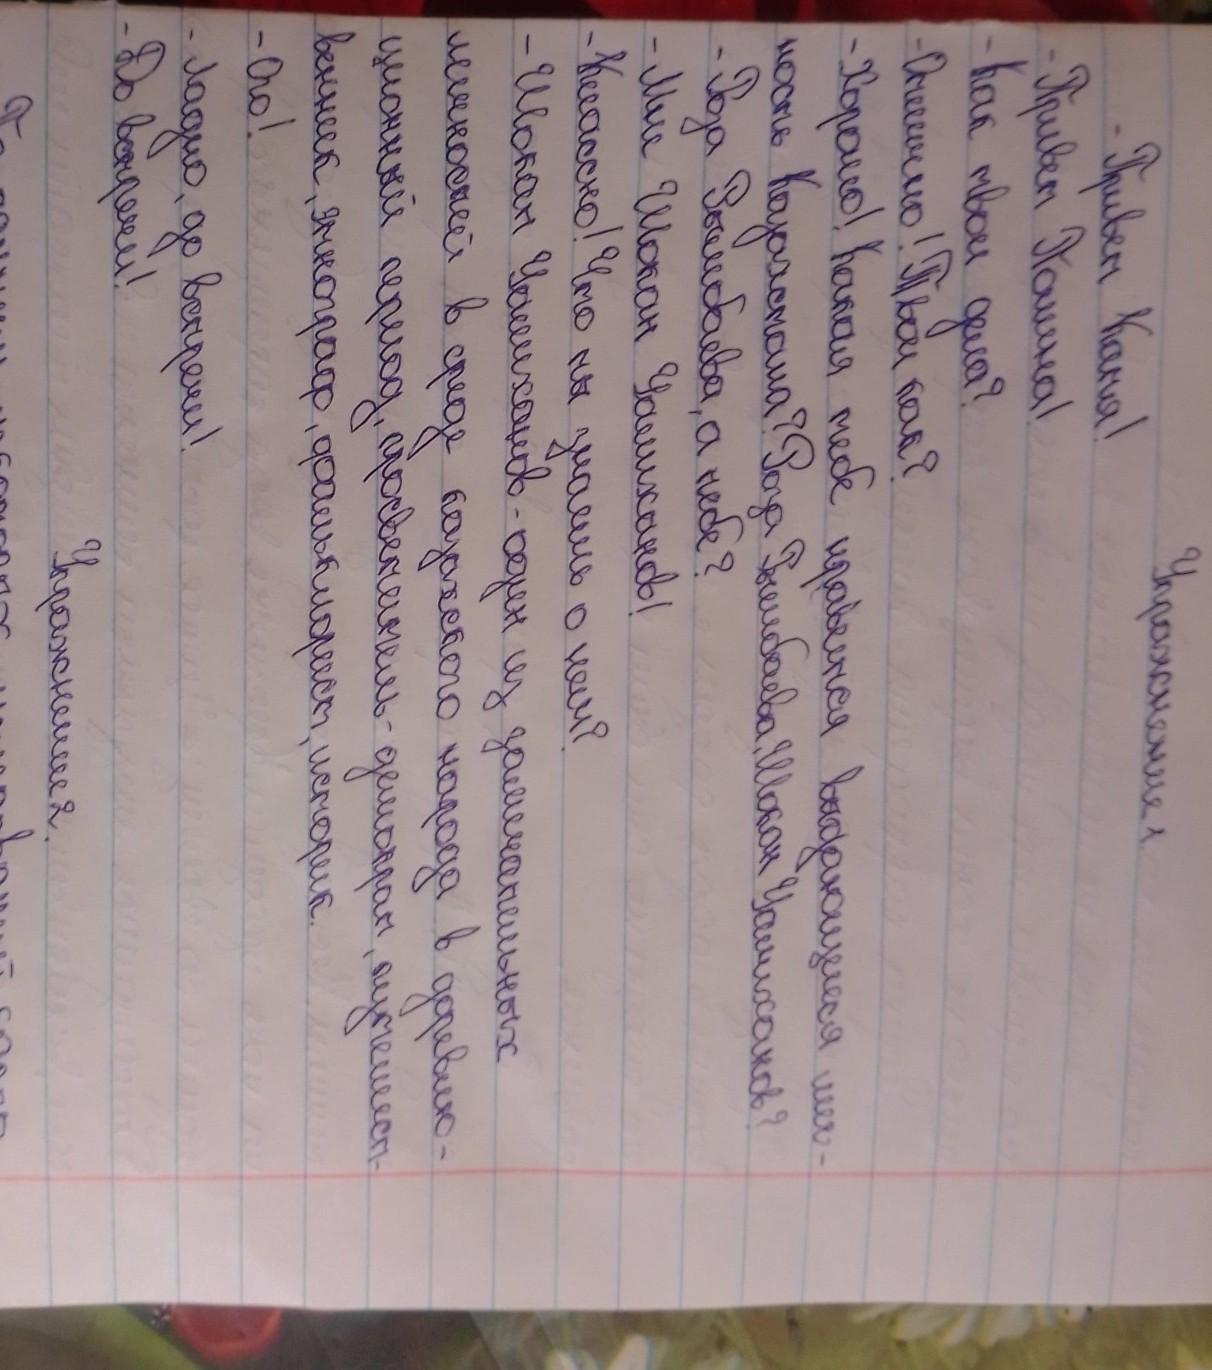 Упражнение 1
- Привет Каня!
- Привет Полина!
- Как твои дела?
- Отлично! Твои как?
- Хорошо! Какая тебе нравится выдающиеся лич-
ность Казахстана? Роза Рымбаева, Шокан Уалиханов?
- Роза Рымбаева, а тебе?
- Мне Шокан Уалиханов!
- Классно! Что ты знаешь о нем?
- Шокан Уалиханов - один из замечательных
личностей в среде казахского народа в доревлю-
ционный период, просветитель-демократ, путешест-
венник, этнограф, фольклорист, историк.
- Ого!
- Ладно, до встречи!
- До встречи!
Упражнение 2.